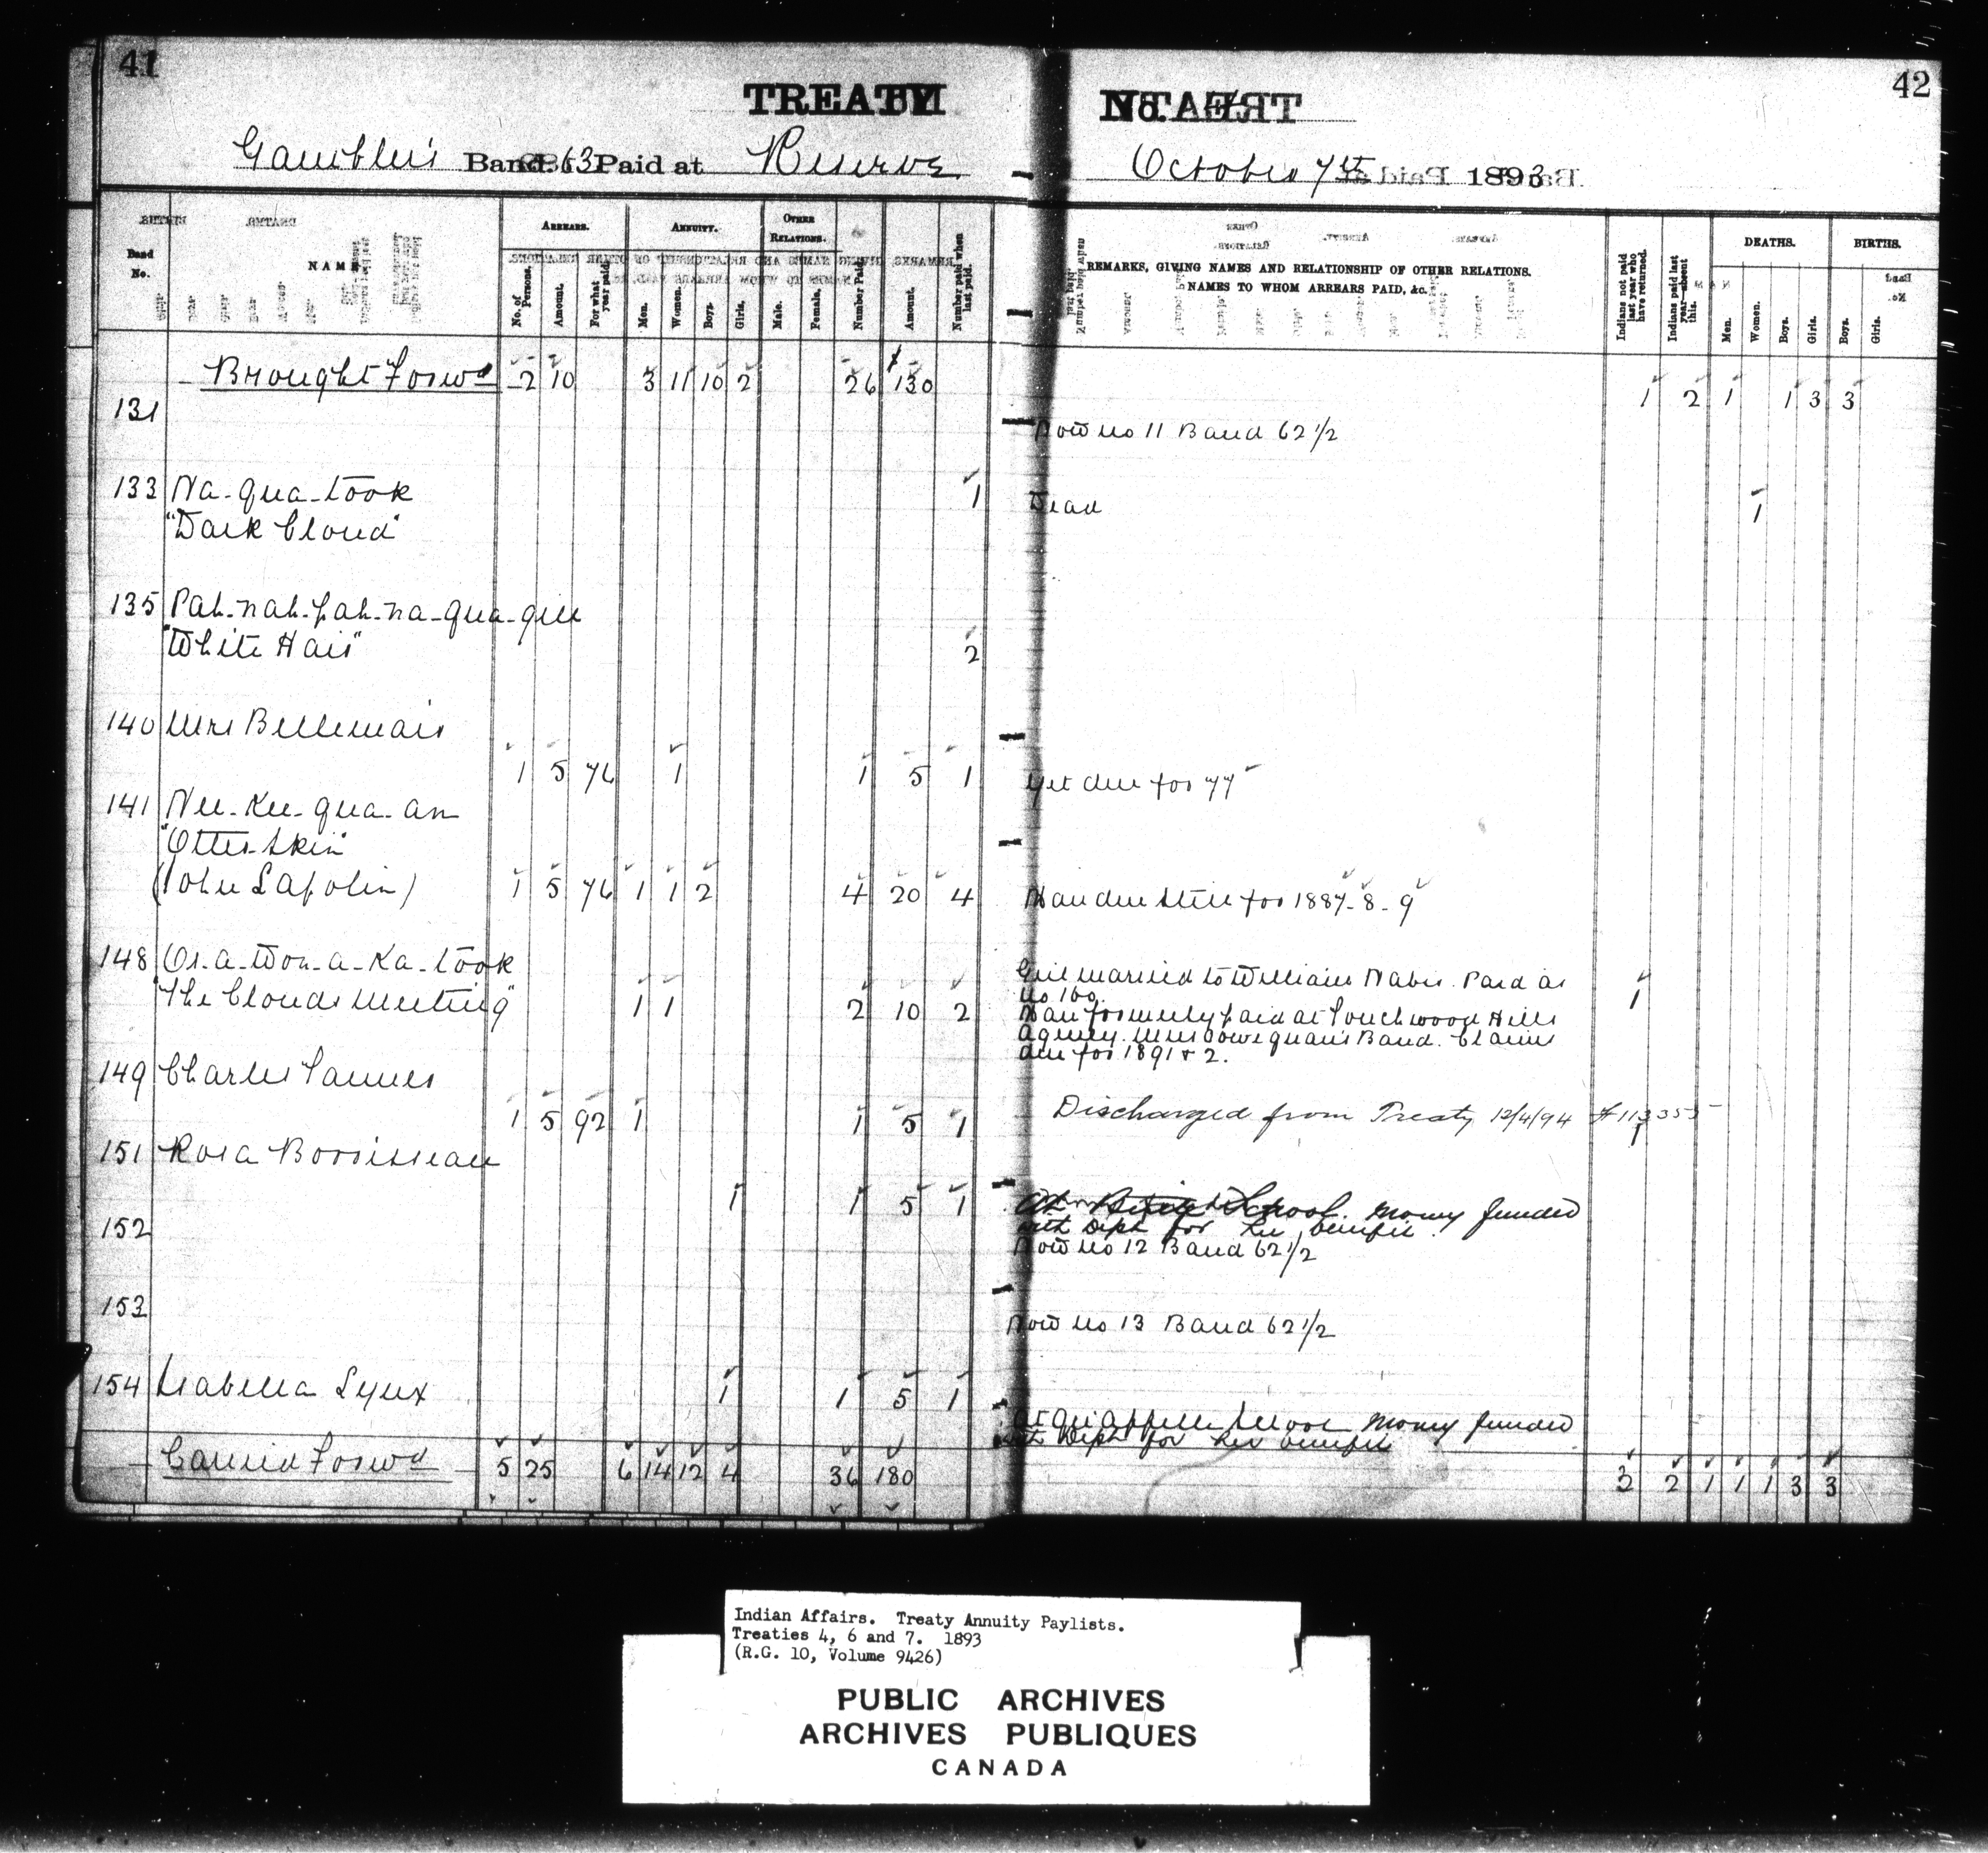 41
42
TREATY
No. 4
Gambler's Band. 63 Paid at Reserve
October 7th 1893
Band No.
NAME.
ARREARS.
No. of Persons.
Amount.
For what year paid.
ANNUITY.
Men.
Women.
Boys.
Girls.
OTHER RELATIONS.
Male.
Female.
Number Paid.
Amount.
Number paid when last paid.
REMARKS, GIVING NAMES AND RELATIONSHIP OF OTHER RELATIONS.
NAMES TO WHOM ARREARS PAID, &c.
Indians not paid last year who have returned.
Indians paid last year—absent this.
DEATHS.
Men.
Women.
Boys.
Girls.
BIRTHS.
Boys.
Girls.
Brought Forwd 2 10 3 11 10 2 26 $130 1 2 1 1 3 3
131 Now no 11 Band 62 1/2
133 Na-qua-took 1 Dead 1
"Dark Cloud"
135 Pah-nah-pah-na-qua-
"White Hair" 2
140 Mrs Bellemair
1 5 76 1 1 5 1 Yet due for 77
141 Nee-Kee-qua-an
"Otter Skin"
(John Lapolin) 1 5 76 1 1 2 4 20 4 Man due still for 1887-8-9
148 Os-a-won-a-Ka-took
"The Clouds Meeting" 1 1 2 10 2 1
Girl married to William Nabis. Paid as
no 160.
Man formerly paid at Touchwood Hills
Agency. Band. Claims
due for 1891 & 2.
149 Charles Tanner
1 5 92 1 1 5 1 Discharged from Treaty 12/4/94 #113355 1
151 Rosa Boosisseau
1 1 5 1 School. Money funded
with Dept for her benefit.
152 Now no 12 Band 62 1/2
153 Now no 13 Band 62 1/2
154 Isabella Syux 1 1 5 1
At Qu'Appelle School Money funded
with Dept for her benefit
Carried Forwd 5 25 6 14 12 4 36 180 3 2 1 1 1 3 3
Indian Affairs. Treaty Annuity Paylists.
Treaties 4, 6 and 7. 1893
(R.G. 10, Volume 9426)
PUBLIC ARCHIVES
ARCHIVES PUBLIQUES
CANADA